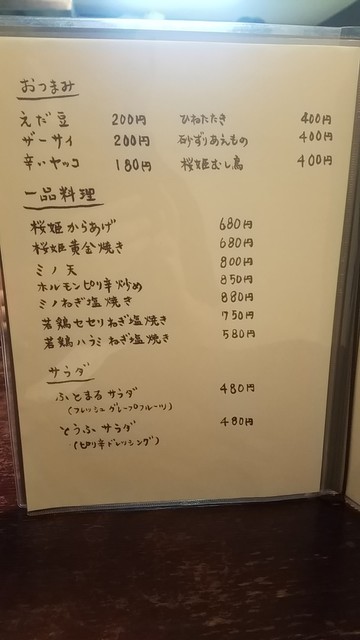 おつまみ
えだ豆 200円 ひねたたき 400円
ザーサイ 200円 砂ずりあえもの 400円
辛いヤッコ 180円 桜姫むし鳥 400円
一品料理
桜姫からあげ 680円
桜姫黄金焼き 680円
ミノ天 800円
ホルモンピリ辛炒め 850円
ミノねぎ塩焼き 880円
若鶏セセリねぎ塩焼き 750円
若鶏ハラミねぎ塩焼き 580円
サラダ
ふとまるサラダ 480円
(フレッシュグレープフルーツ)
とうふサラダ 480円
(ピリ辛ドレッシング)